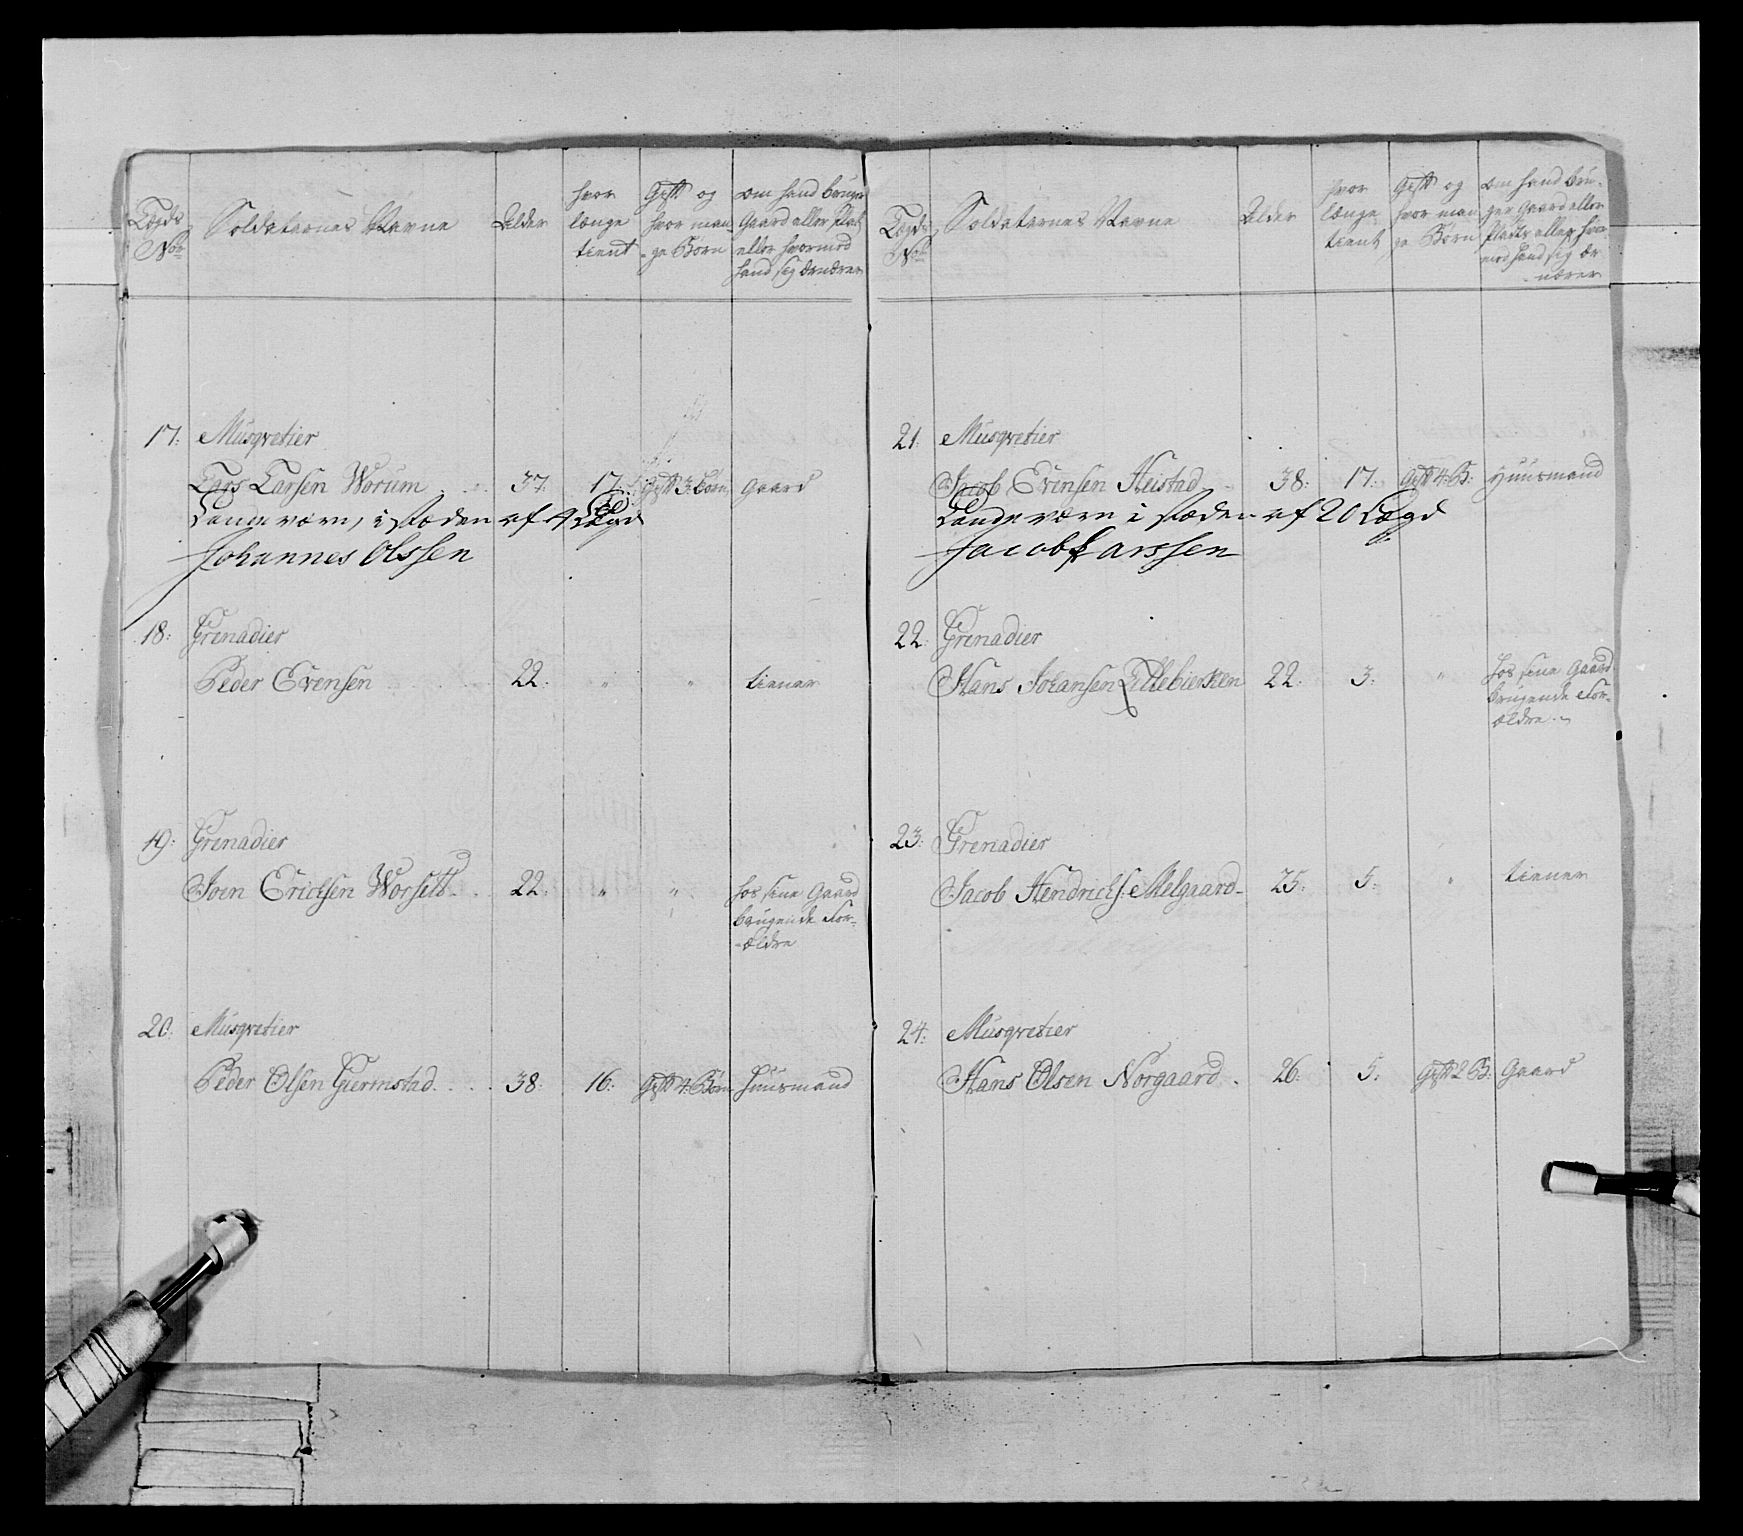 Lægds No: Soldaternes Navne Alder hvor længe tient Gift og hvor mange Børn om hand bruger Gaard eller Plads eller hvormed hand sig ernærer
17: Musqvetier
Lars Larsen Worum 37: 17: Gift 3 Børn Gaard
Landeværn, i stæden af 4 Lægd
Johannes Olssen
18: Grenadier
Peder Evensen 22: " " tiener
19: Grenadier
Joen Erichsen Worsett 22: " " hos sine Gaard
brugende For-
ældre
20: Musqvetier
Peder Olsen Giermstad 38: 16: Gift 4: Børn Huusmand
Lægds No: Soldaternes Navne Alder hvor længe tient Gift og hvor mange Børn om hand bruger Gaard eller Plads eller hvormed hand sig ernærer
21: Musqvetier
Jacob Evensen Heistad 38: 17: Gift 4: B: Huusmand
Landeværn i stæden af 20 Lægd
Jacob Larssen
22: Grenadier
Hans Johansen Lillebierken 22: 3: " hos sine Gaard
brugende For-
ældre
23: Grenadier
Jacob Hendrichs: Melgaard 25: 5: " tiener
24: Musqvetier
Hans Olsen Norgaard 26: 5: Gift 2 B: Gaard